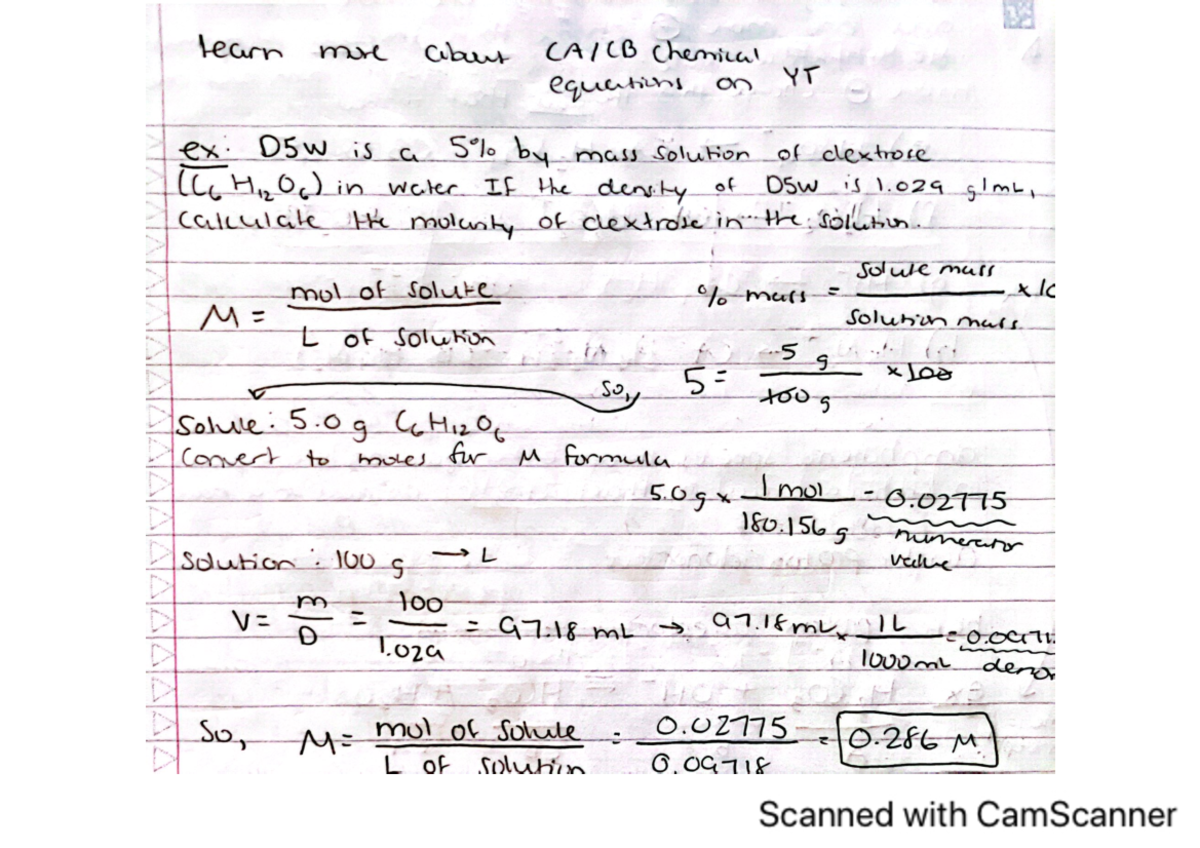 learn more about CA/CB chemical
equations on YT
ex: D5W is a 5% by mass solution of dextrose
(C6 H12 O6) in water. If the density of D5W is 1.029 g/mL,
calculate the molarity of dextrose in the solution.
M = mol of solute / L of solution
% mass = solute mass / solution mass × 10
5 = 5 g / 100 g × 100
so,
Solute: 5.0 g C6H12O6
Convert to moles for M formula
5.0g × 1 mol / 180.156 g = 0.02775
numerator
value
Solution: 100 g → L
V = m / D = 100 / 1.029 = 97.18 mL → 97.18 mL × 1L / 1000 mL = 0.0971
denom
So, M = mol of solute / L of solution = 0.02775 / 0.09718 = 0.286 M
Scanned with CamScanner